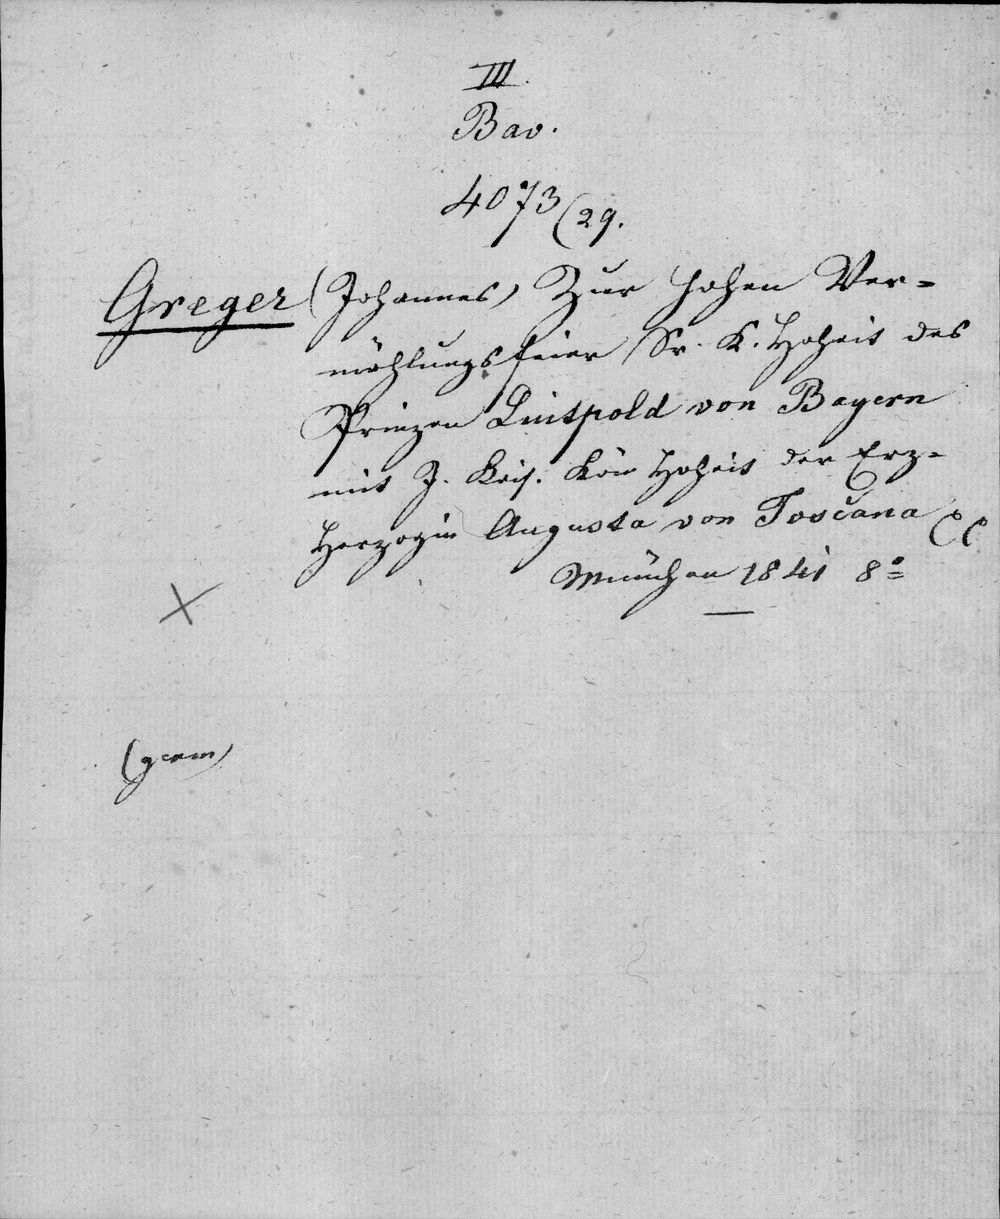 III.
Bav.
4073(29.
Greger (Johannes) Zur hohen Ver-
mählungsfeier Sr. K. Hoheit des
Prinzen Luitpold von Bayern
mit J. Kais. Kön Hoheit der Erz-
Herzogin Augusta von Toscana
München 1841 8°
(germ)